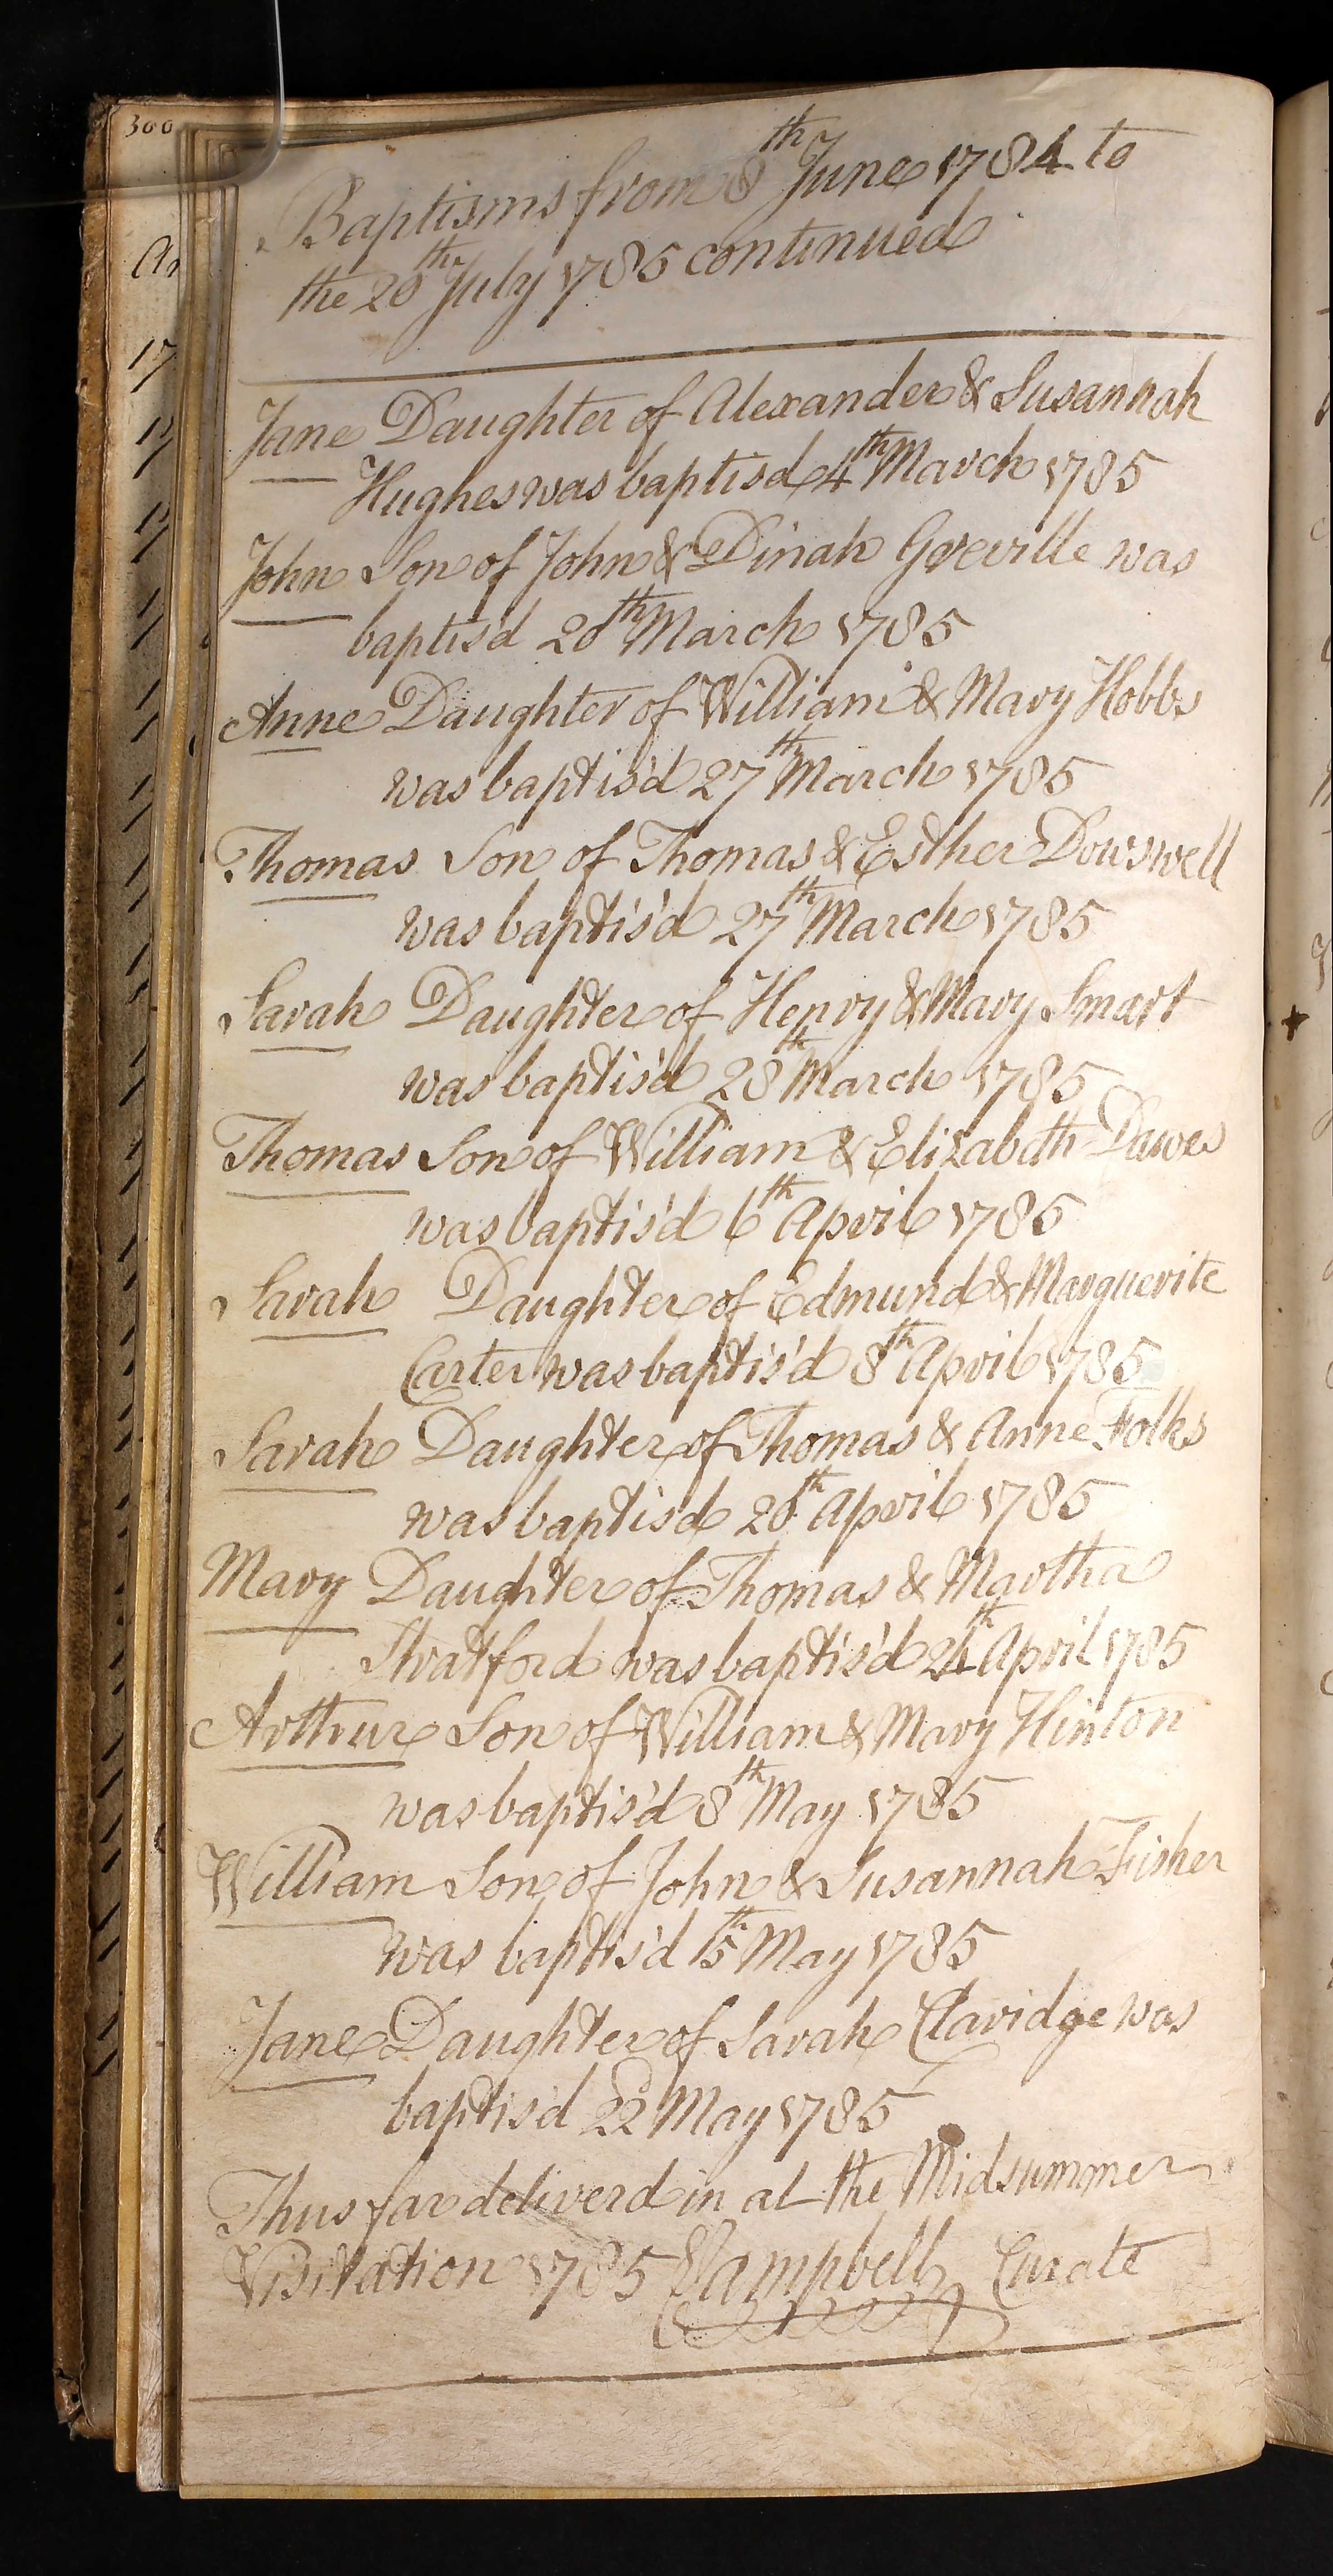 300
Baptisms from 8th June 1784 to
the 20th July 1785 continued
Jane Daughter of Alexander & Susannah
Hughes was baptisd 4th March 1785
John Son of John & Dinah Greville was
baptis'd 20th March 1785
Anne Daughter of William & Mary Hobbs
was baptis'd 27th March 1785
Thomas Son of Thomas & Esther Dowswell
was baptis'd 27th March 1785
Sarah Daughter of Henry & Mary Smart
was baptis'd 28th March 1785
Thomas Son of William & Elizabeth Dawes
was baptis'd 6th April 1785
Sarah Daughter of Edmund & Marguerite
Carter was baptis'd 8th April 1785
Sarah Daughter of Thomas & Anne Folks
was baptis'd 20th April 1785
Mary Daughter of Thomas & Martha
Stratford was baptis'd 24th April 1785
Arthur Son of William & Mary Hinton
was baptis'd 8th May 1785
William Son of John & Susannah Fisher
was baptis'd 15th May 1785
Jane Daughter of Sarah Claridge was
baptis'd 22d May 1785
Thus far deliverd in at the Midsummer
Visitation 1785 Campbell Curate